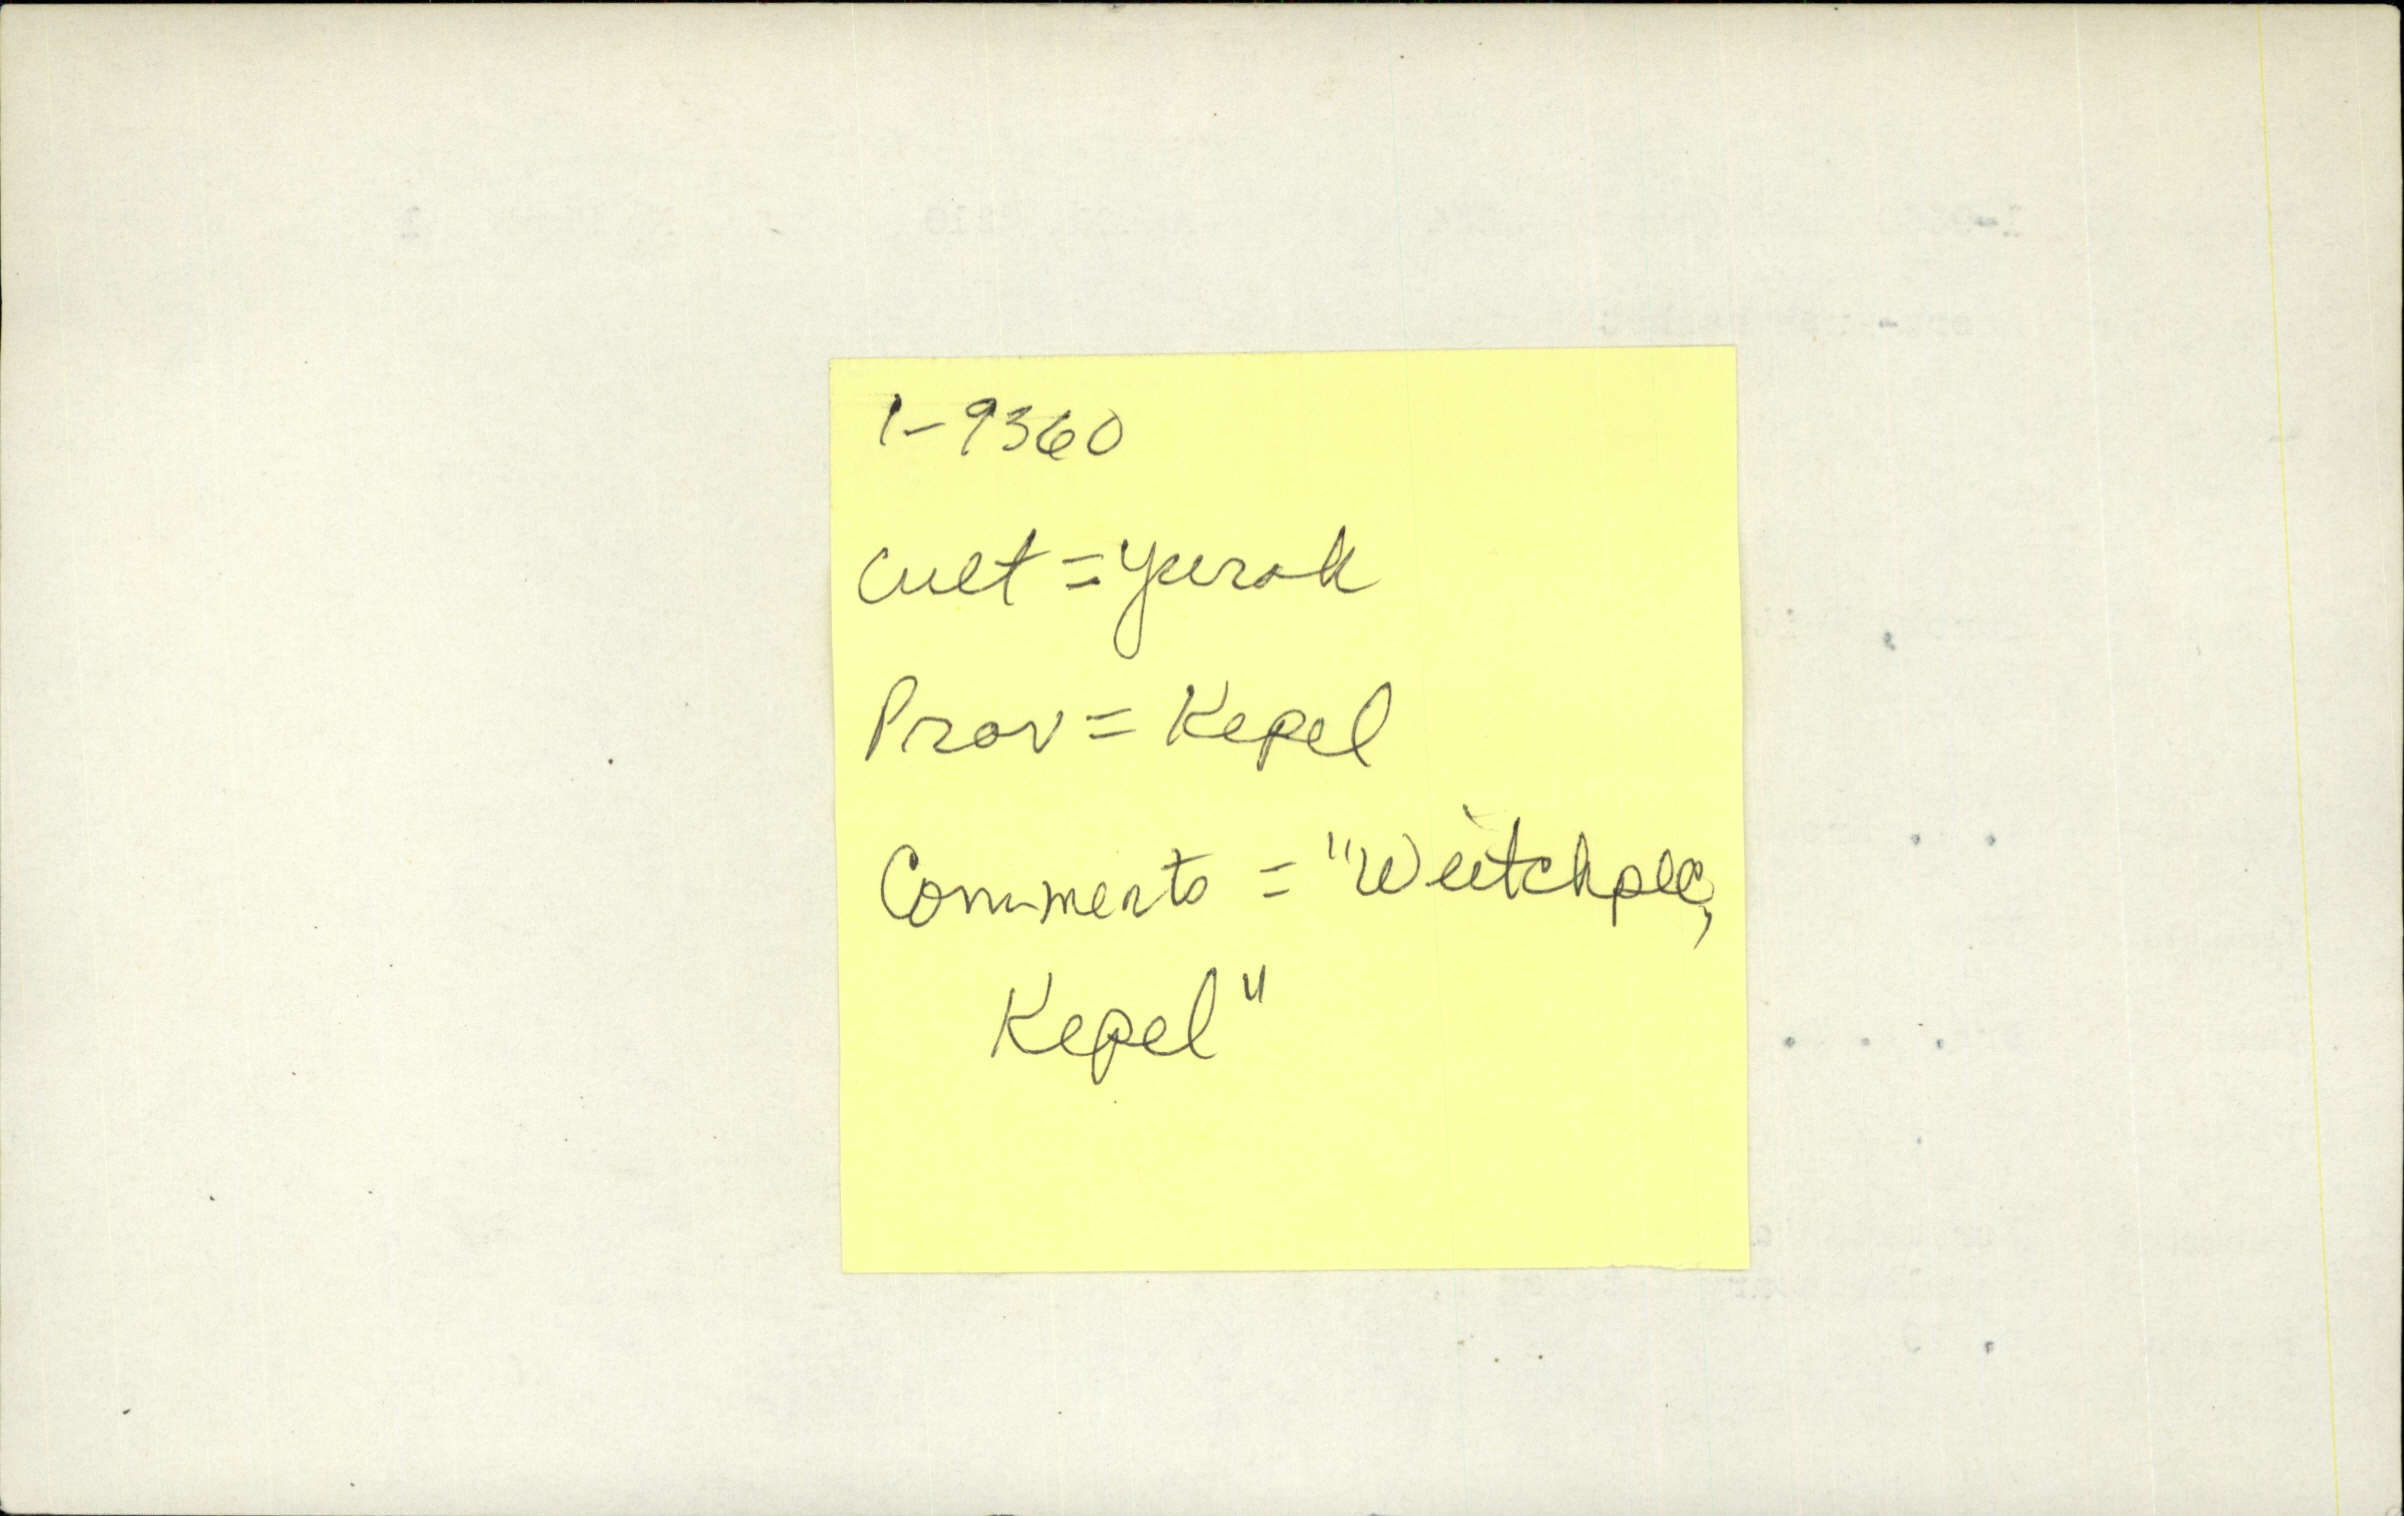 1-9360
Cult = Yurok
Prov = Kepel
Comments = "Weitchpec,
Kepel"